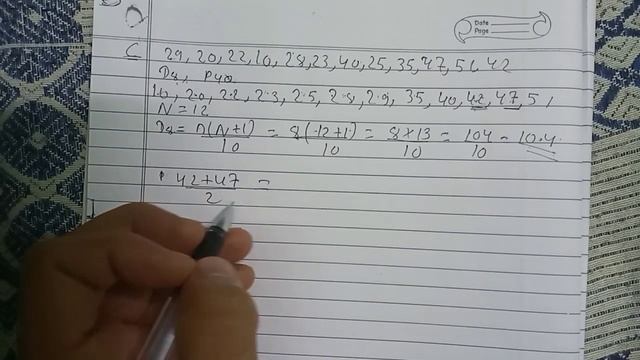 Date
Page
C 29, 20, 22, 10, 28, 23, 40, 25, 35, 47, 51, 42
D8, P40
10, 20, 22, 23, 25, 28, 29, 35, 40, 42, 47, 51
N = 12
D8 = n(N+1)/10 = 8(12+1)/10 = 8×13/10 = 104/10 = 10.4
42+47/2 =